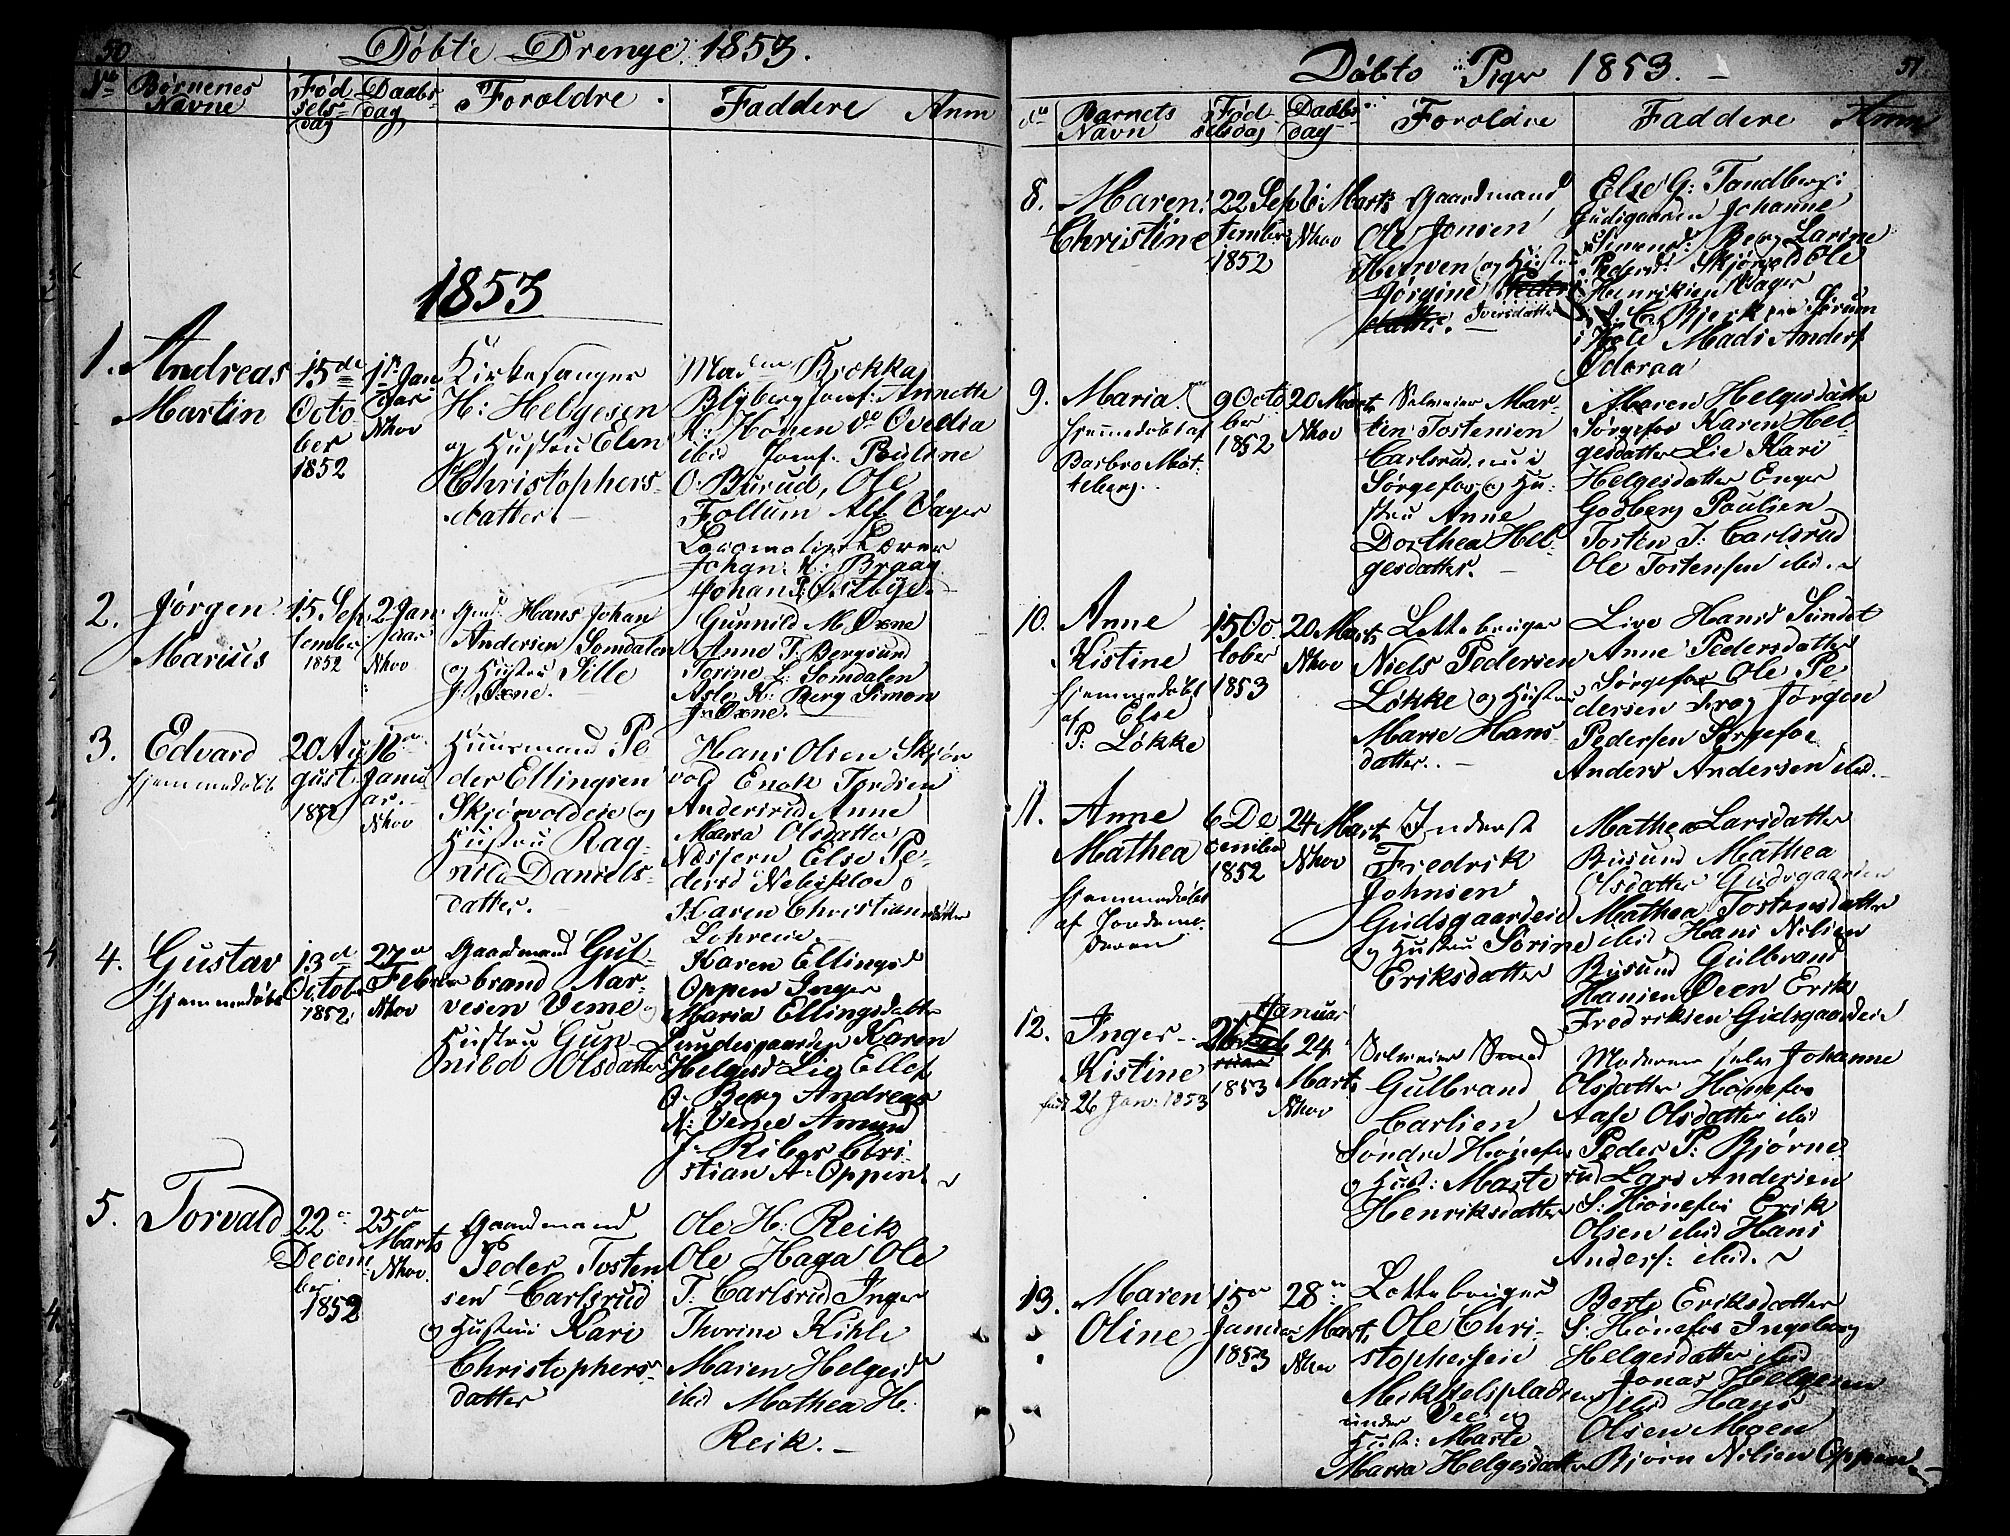 50
Døbte Drenge 1853.
No Børnenes Navne
Fødselsdag
Daabsdag
Foroldre.
Faddere
Anm
1853
1. Andreas
Martin
15de
Octo
ber
1852
1ste Jan
uari
Nhov
Kirkesanger
H: Helgesen
og Hustru Elen
Christophers-
datter.
Madm Brækka
Blyberg Jomf: Annette
K: Hønen do Ovedia
ibid Jomf. Pauline
O: Burud, Ole
Follum Alf Vager
Lærer
Johan: K: Braag
Johan P: Østbye.
2. Jørgen
Marius
15. Sep
tember
1852
2 Jan
uar
Nhov
Gmd. Hans Johan
Andersen Somdalen
og Hustru Sille
J: Oxne.
Gunnild M: Oxne
Anne T. Bergsund
Torine L: Somdalen
Asle K: Berg Simon
J: Oxne.
3. Edvard
hjemmedøbt
20 Au
gust
1852
16de
Janu
ar.
Nhov
Huusmand Pe
der Ellingsen
Skjørvoldeie og
Hustru Rag-
nild Daniels-
datter.
Hans Olsen Skjør
vold Enok Jordsen
Andersrud Anne
Maria Olsdatter
Næsjern Else Pe-
dersd
Karen Christiansdatter
Lohreeie
4. Gustav
hjemmedøbt
13d
Octobr
1852
27de
Febr
Nhov
Gaardmand Gul-
brand Nar-
vesen Veme og
Hustru Gun-
nild Olsdatter
Karen Ellingsd
Oppen Inger
Maria Ellingsdatter
Lundesgaarden Karen
Helgesd Lie Ellef
O: Berg Andreas
N: Veme Amund
J. Riber Chri-
stian A: Oppen.
5. Torvald
22de
Decem
ber
1852
25de
Marts
Nhov.
Gaardmand
Peder Tosten
sen Carlsrud
og Hustru Kari
Christophers-
datter
Ole H: Reik
Ole Haga Ole
T. Carlsrud Inger
Thorine Kihle
Maren Helgesd
ibid Mathea H.
Reik.
51
Døbte Piger 1853.
No Barnets Navn
Fødselsdag
Daabsdag
Foroldre
Faddere
Anm
8. Maren
Christine
22 Sep
tember
1852
6 Marts
Nhov
Gaardmand
Ole Jonsen
Hverven og Hustru
Jørgine Peders
datter. Iversdatter
Else G: Tandberg:
Gudsgaarden Johanne
Simensd: Berg Larine
Pedersd: Skjørvold Ole
Henriksen Vager
Bjerk
i Hole Mads Anders
9. Maria.
hjemmedøbt af
Barbro Møt-
teberg.
9 Octo
ber
1852
20 Marts
Nhov
Selveier Mar-
ten Tostensen
Carlsrud nu i
Sørgefos og Hu-
stru Anne
Dorthea Hel-
gesdatter.
Maren Helgesdatter
Sørgefos Karen Hel-
gesdatter Lie Kari
Helgesdatter Enger
Godberg Poulsen
Tosten T. Carlsrud
Ole Tostensen ibid.
10. Anne
Kistine
hjemmedøbt
af Else
P: Løkke
15 Oc
tober
1853
20 Marts
Nhov
Lottebruger
Niels Pedersen
Løkke og Hustru
Marie Hans-
datter.
Live Hansd Sundet
Anne Pedersdatter
Sørgefos Ole Pe-
dersen Krog Jørgen
Pedersen Sørgefos
Anders Andersen ibid.
11. Anne
Mathea
hjemmedøbt
af Jordemo-
deren
6 De
cember
1852
24 Marts
Nhov
Inderst
Fredrik
Johnsen
Gudsgaardseie
og Hustru Sørine
Eriksdatter
Mathea Larsdatter
Busund Mathea
Olsdatter Gudsgaarden
Mathea Tostensdatter
ibid Hans Nilsen
Busund Gulbrand
Hansen Oeen Erik
Fredriksen Gudsgaardeie
12. Inger
Kistine
født 26 Jan: 1853
26 Januar
1853
24
Marts
Nhov
Selveier Smed
Gulbrand
Carlsen
Søndre Hønefos
og Hust: Marte
Henriksdatter
Moderen selv Johanne
Olsdatter Hønefos
Aase Olsdatter ibid
Peder P. Bjørne-
rud Lars Andersen
S: Hønefos Erik
Olsen ibid Hans
Anders: ibid.
13. Maren
Oline
15de
Januar
1853
28de
Marts
Nhov
Lottebruger
Ole Chri-
stophersen
Mikkelspladsen
under Vee og
Hust: Marte
Maria Helgesdatter
Berte Eriksdatter
S: Hønefos Ingeborg
Helgesdatter ibid
Jonas Helgesen
ibid Hans
Olsen Moen
Bjørn Nilsen Oppen.